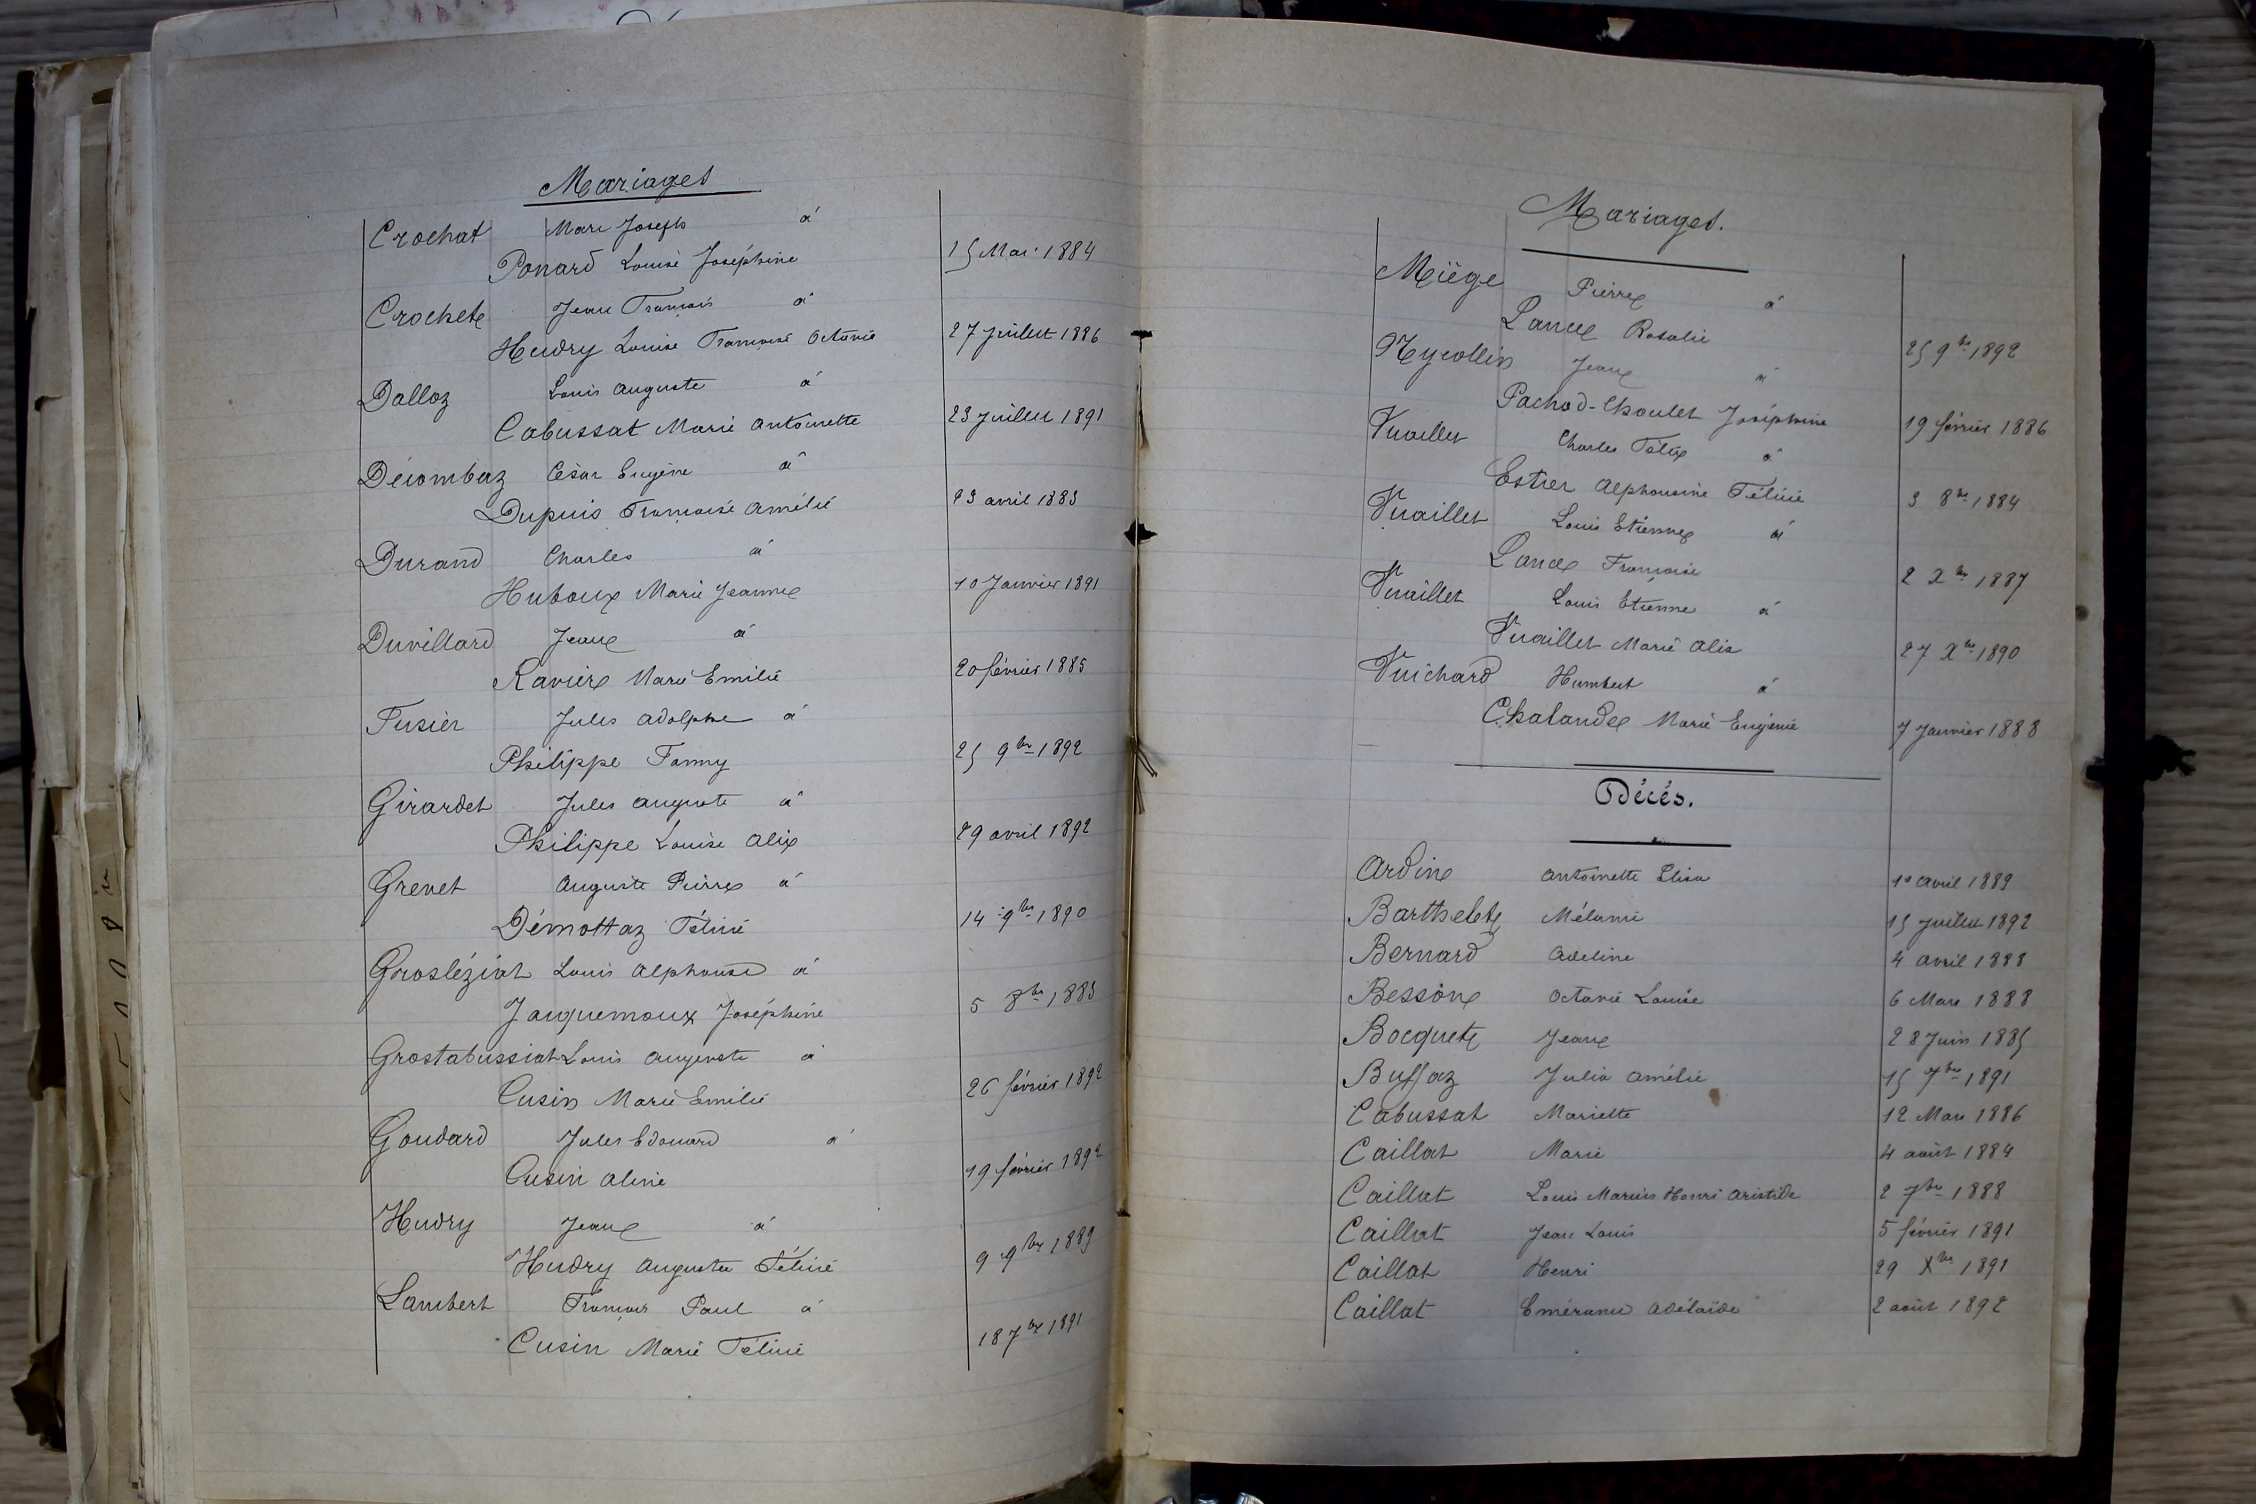 Mariages
Crochat Marc Joseph à
Ponard Louise Joséphine 15 Mai 1884
Crochet Jean François à
Hudry Louise Françoise Octavie 27 Juillet 1886
Dalloz Louis Auguste à
Cabussat Marie Antoinette 23 Juillet 1891
Décombaz César Eugène à
Dupuis Françoise Amélie 23 avril 1885
Durand Charles à
Huboux Marie Jeanne 10 Janvier 1891
Duvillard Jean à
Ravier Marie Emilie 20 février 1885
Fusier Jules Adolphe à
Philippe Fanny 25 9bre 1892
Girardet Jules Auguste à
Philippe Louise Alix 29 avril 1892
Grenet Auguste Pierre à
Démottaz Félicie 14 9bre 1890
Grosléziat Louis Alphonse à
Jacquemoux Joséphine 5 8bre 1885
Grostabussiat Louis Auguste à
Cusin Marie Emilie 26 février 1892
Goudard Jules Edouard à
Cusin Aline 19 février 1892
Hudry Jean à
Hudry Auguste Félicie 9 9bre 1889
Lambert François Paul à
Cusin Marie Félicie 18 7bre 1891
Mariages.
Miège Pierre à
Lance Rosalie 25 9bre 1892
Nycollin Jean à
Pachod-Choulet Joséphine 19 février 1886
Vuaillet Charles Félix à
Estier Alphonsine Félicie 3 8bre 1884
Vuaillet Louis Etienne à
Lance Françoise 2 Xbre 1887
Vuaillet Louis Etienne à
Vuaillet Marie Alix 27 Xbre 1890
Vuichard Humbert à
Chalande Marie Eugénie 7 Janvier 1888
Décés.
Ardin Antoinette Elisa 10 Avril 1889
Barthelet Mélanie 15 Juillet 1892
Bernard Adeline 4 Avril 1888
Besson Octavie Louise 6 Mars 1888
Bocquet Jean 28 Juin 1885
Buffaz Julia Amélie 15 7bre 1891
Cabussat Mariette 12 Mars 1886
Caillat Marie 4 août 1884
Caillat Louis Marius Henri Aristide 2 7bre 1888
Caillat Jean Louis 5 février 1891
Caillat Henri 29 Xbre 1891
Caillat Emérance Adélaïde 2 août 1892